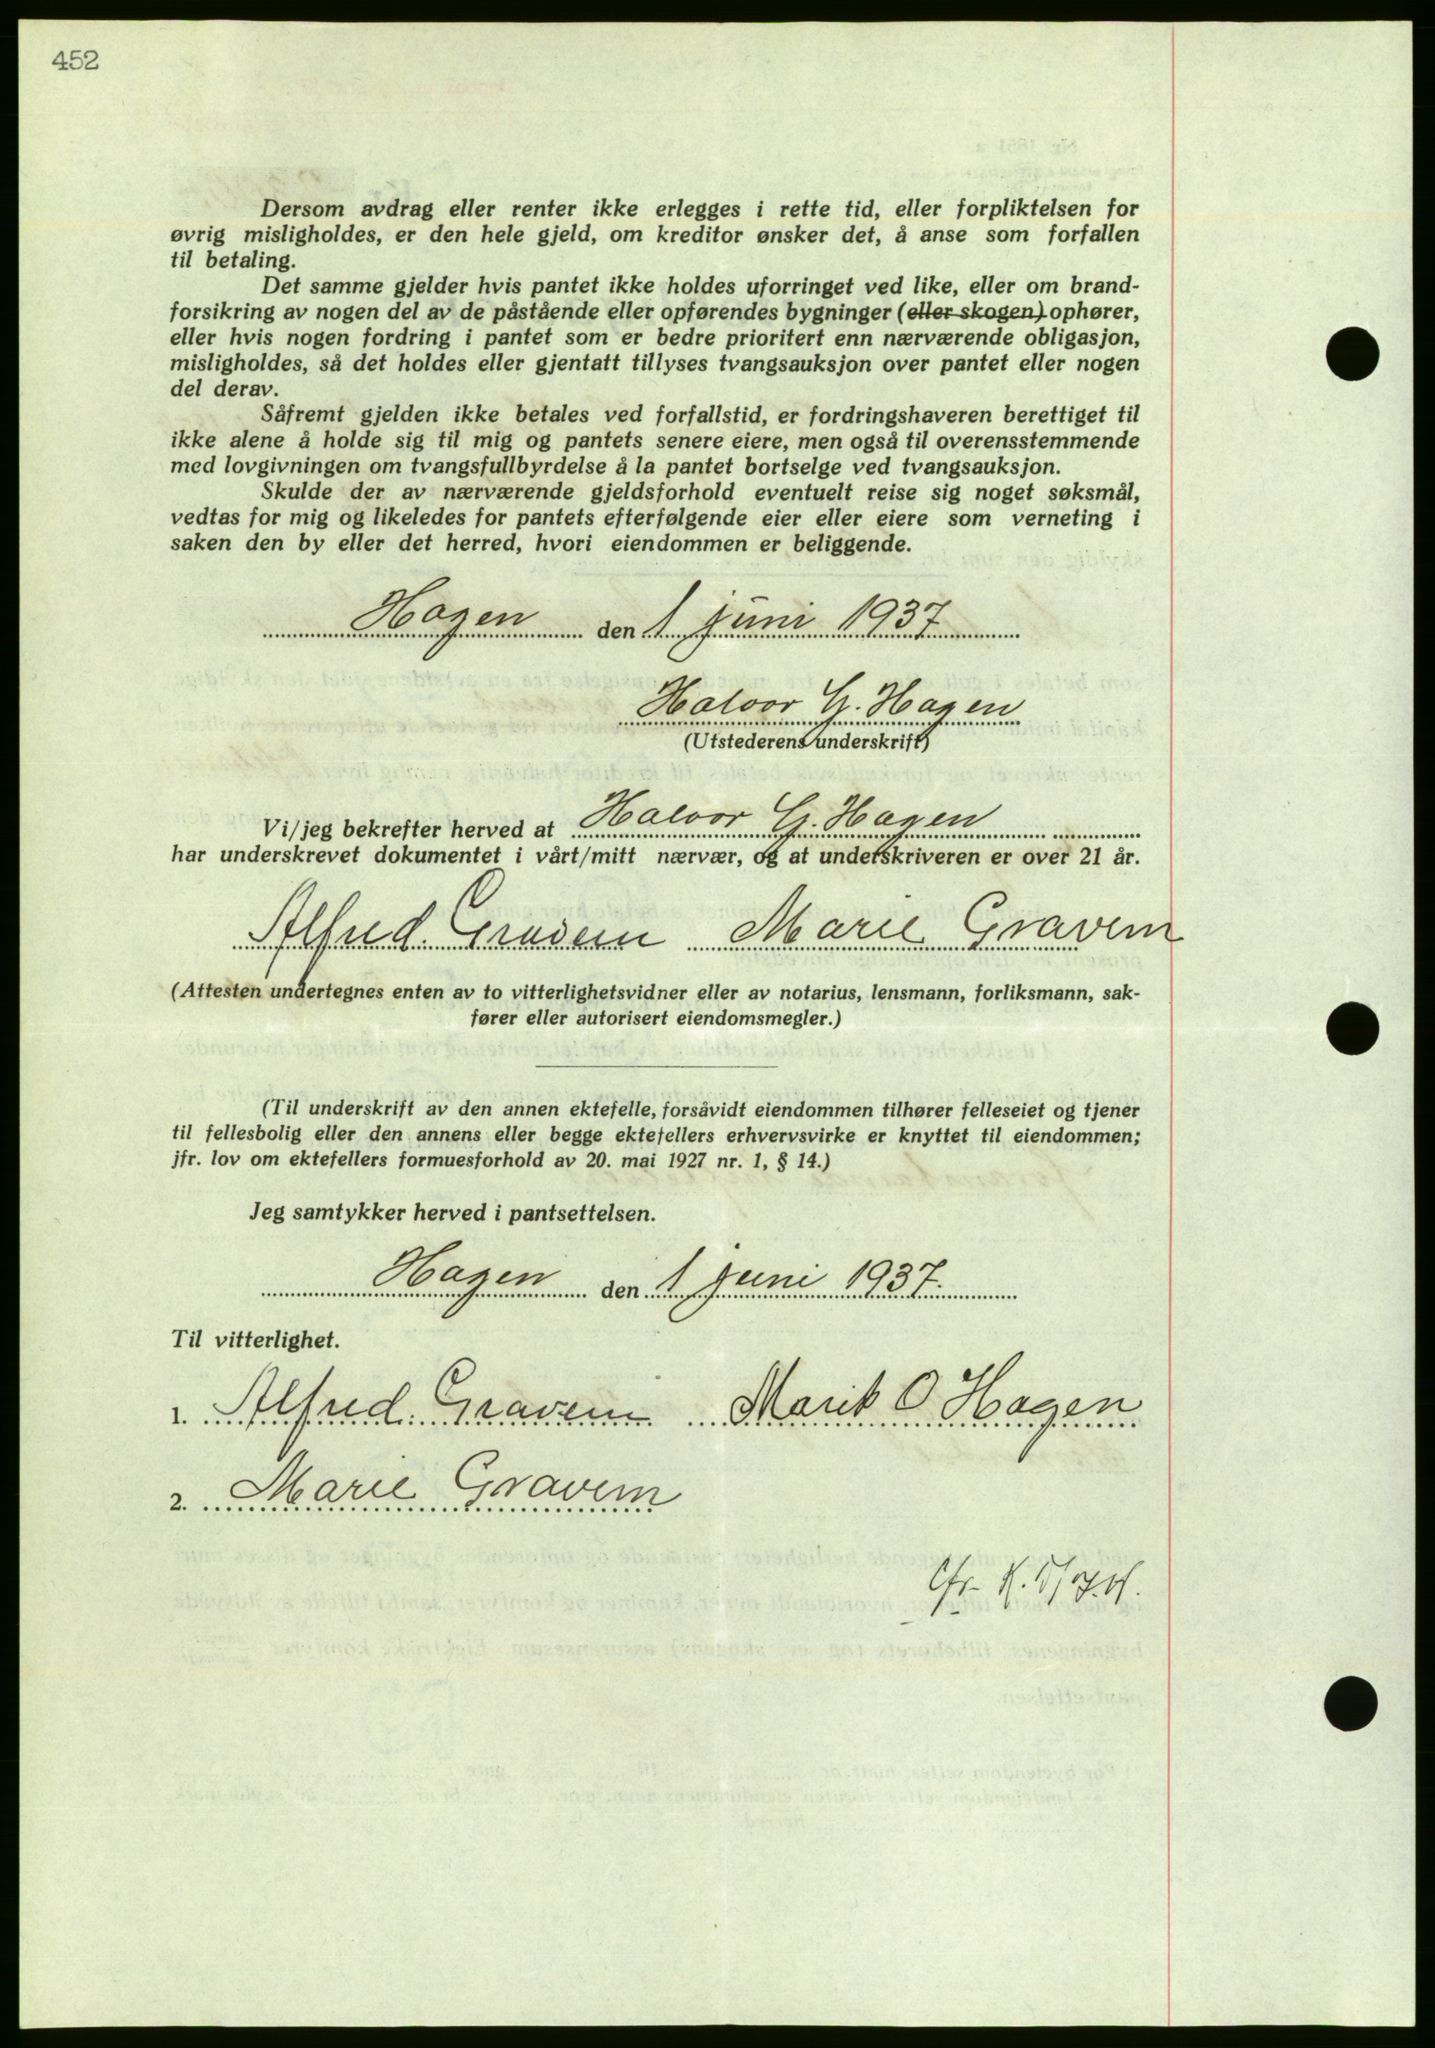 452
Dersom avdrag eller renter ikke erlegges i rette tid, eller forpliktelsen for
øvrig misligholdes, er den hele gjeld, om kreditor ønsker det, å anse som forfallen
til betaling.
Det samme gjelder hvis pantet ikke holdes uforringet ved like, eller om brand-
forsikring av nogen del av de påstående eller opførendes bygninger (eller skogen) ophører,
eller hvis nogen fordring i pantet som er bedre prioritert enn nærværende obligasjon,
misligholdes, så det holdes eller gjentatt tillyses tvangsauksjon over pantet eller nogen
del derav.
Såfremt gjelden ikke betales ved forfallstid, er fordringshaveren berettiget til
ikke alene å holde sig til mig og pantets senere eiere, men også til overensstemmende
med lovgivningen om tvangsfullbyrdelse å la pantet bortselge ved tvangsauksjon.
Skulde der av nærværende gjeldsforhold eventuelt reise sig noget søksmål,
vedtas for mig og likeledes for pantets efterfølgende eier eller eiere som verneting i
saken den by eller det herred, hvori eiendommen er beliggende.
Hagen den 1 juni 1937
Halvor G. Hagen
(Utstederens underskrift)
Vi/jeg bekrefter herved at Halvor G. Hagen
har underskrevet dokumentet i vårt/mitt nærvær, og at underskriveren er over 21 år.
Alfred Gravem Marie Gravem
(Attesten undertegnes enten av to vitterlighetsvidner eller av notarius, lensmann, forliksmann, sak-
fører eller autorisert eiendomsmegler.)
(Til underskrift av den annen ektefelle, forsåvidt eiendommen tilhører felleseiet og tjener
til fellesbolig eller den annens eller begge ektefellers erhvervsvirke er knyttet til eiendommen;
jfr. lov om ektefellers formuesforhold av 20. mai 1927 nr. 1, § 14.)
Jeg samtykker herved i pantsettelsen.
Hagen den 1 juni 1937.
Til vitterlighet.
1. Alfred Gravem Marit O Hagen
2. Marie Gravem